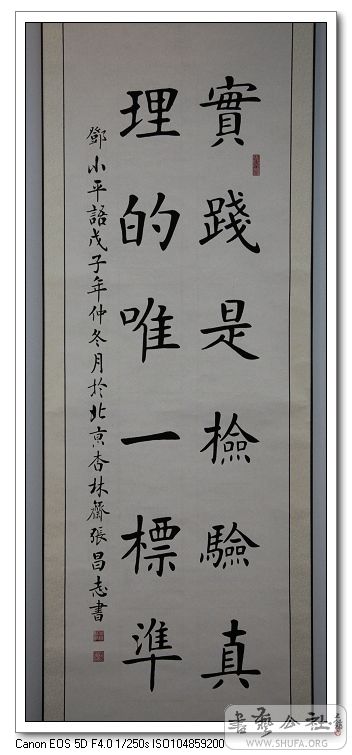 實踐是檢驗真
理的唯一標準
鄧小平語戊子年仲冬月於北京杏林齋張昌志書
Canon EOS 5D F4.0 1/250s ISO104859200
書藝公社
WWW.SHUFA.ORG